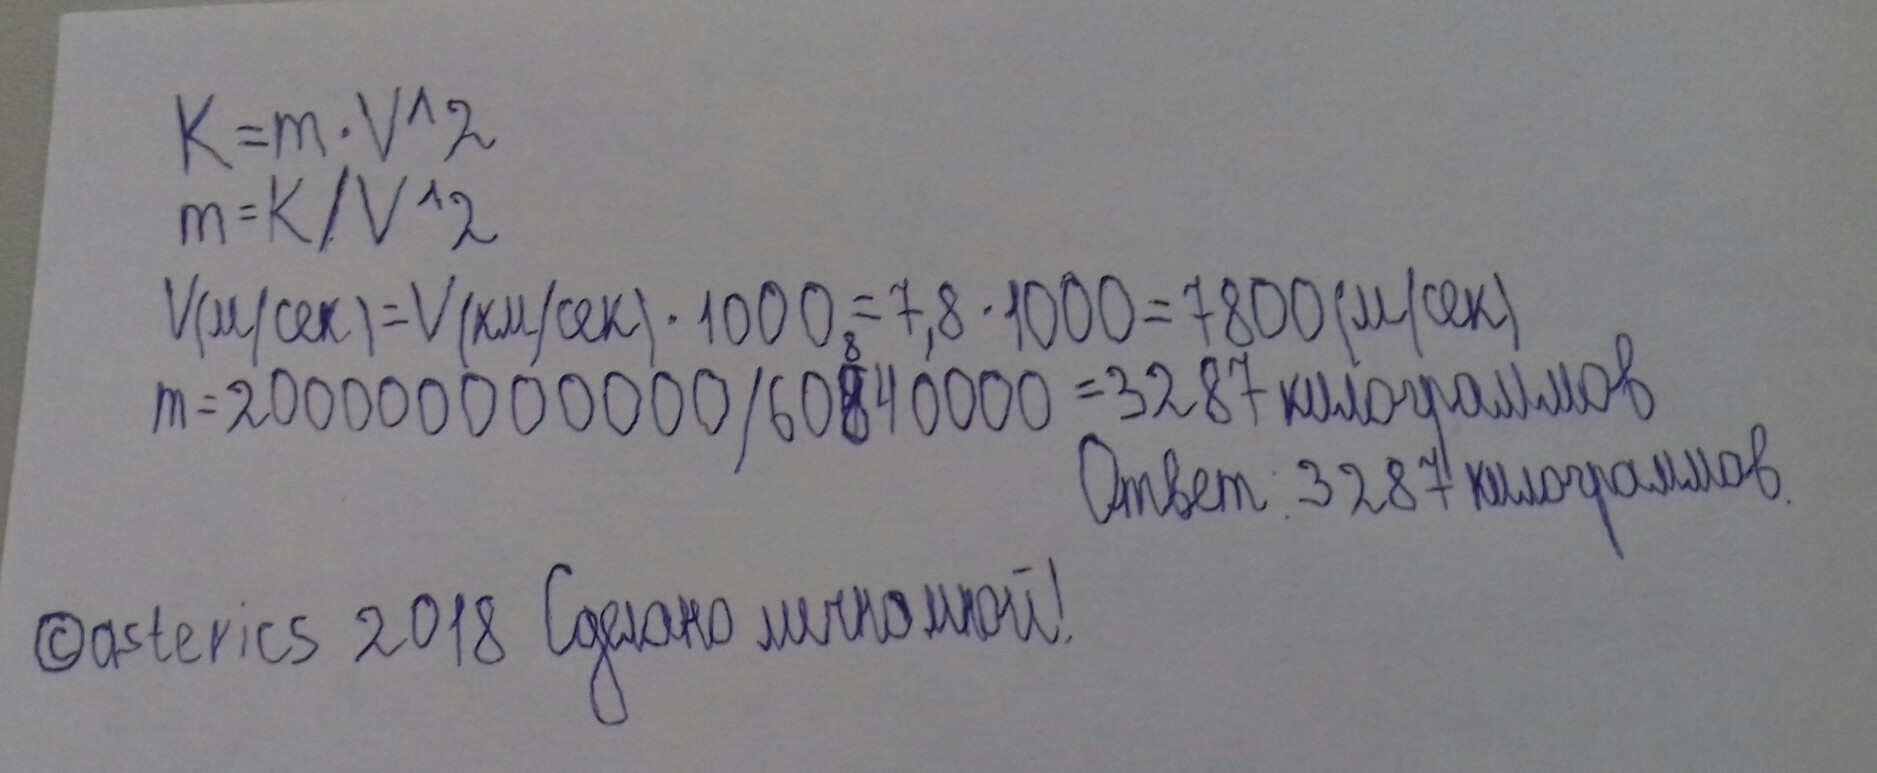 K=m·V^2
m=K/V^2
V(м/сек)=V(км/сек)·1000=7,8·1000=7800(м/сек)
8
m=200000000000/60840000=3287килограммов
Ответ: 3287 килограммов.
©asterics 2018 Сделано лично мной!